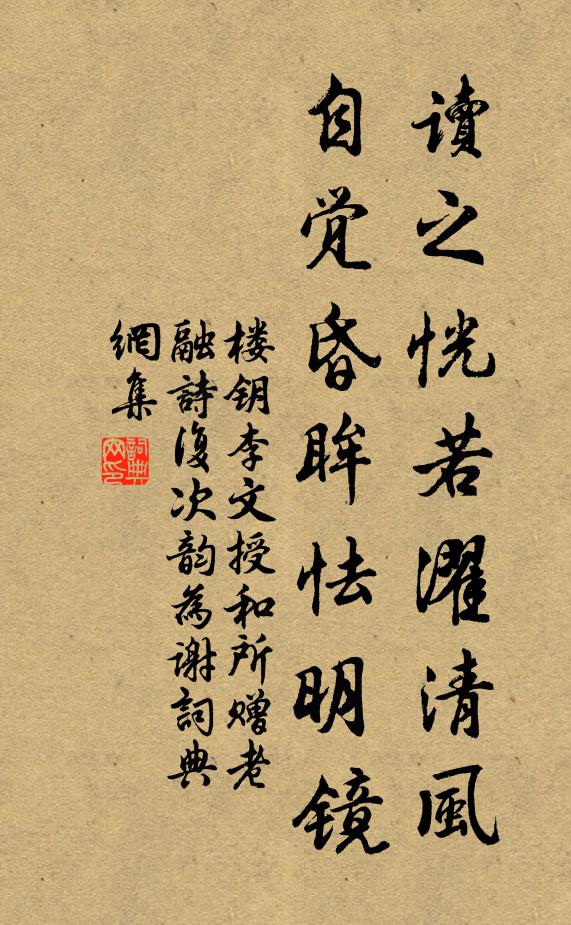 讀之恍若濯清風
自觉昏眸怯明镜
楼钥李文授和所赠老
融詩復次韵為谢詞典
網集
詞典
网印